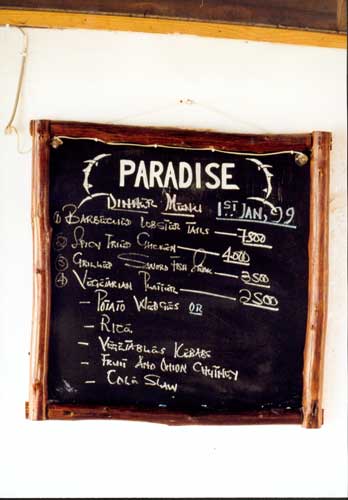 PARADISE
DINNER MENU 1ST JAN, 99
① BARBECUED LOBSTER TAILS — 7500
② SPICY FRIED CHICKEN — 4000
③ GRILLED SWORD FISH — 3500
④ VEGETARIAN PLATTER — 2500
- POTATO WEDGES OR
- RICE
- VEGETABLES KEBABS
- FRUIT AND ONION CHUTNEY
- COLE SLAW